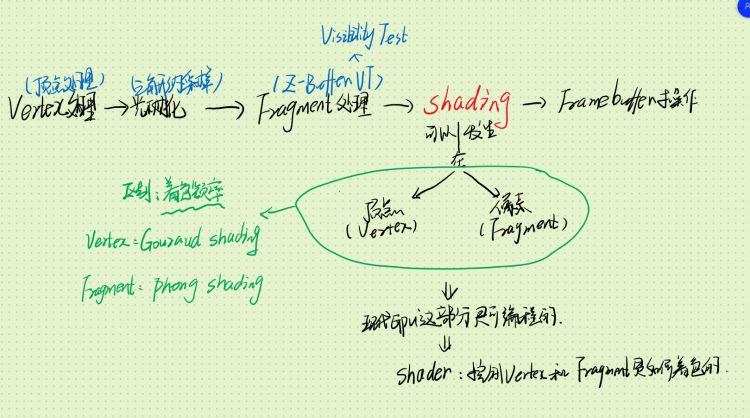 Visibility Test
(顶点处理) (三角形的采样) (Z-Buffer VT)
Vertex处理 → 光栅化 → Fragment处理 → shading → Framebuffer操作
可以 发生
在
区别：着色频率
顶点 像素
(Vertex) (Fragment)
Vertex：Gouraud shading
Fragment：Phong shading
现代Gpu这部分是可编程的.
shader：控制Vertex和Fragment是如何着色的.